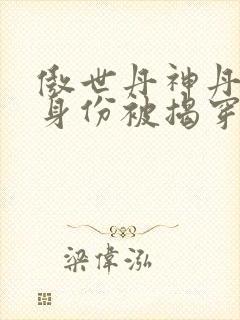 傲世丹神丹
身份被揭穿
梁偉泓